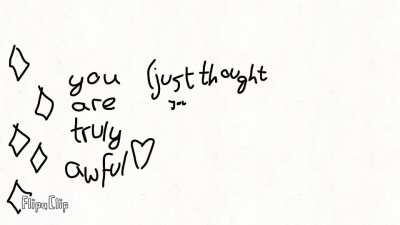 you (just thought
you
are
truly
awful♡
FlipaClip